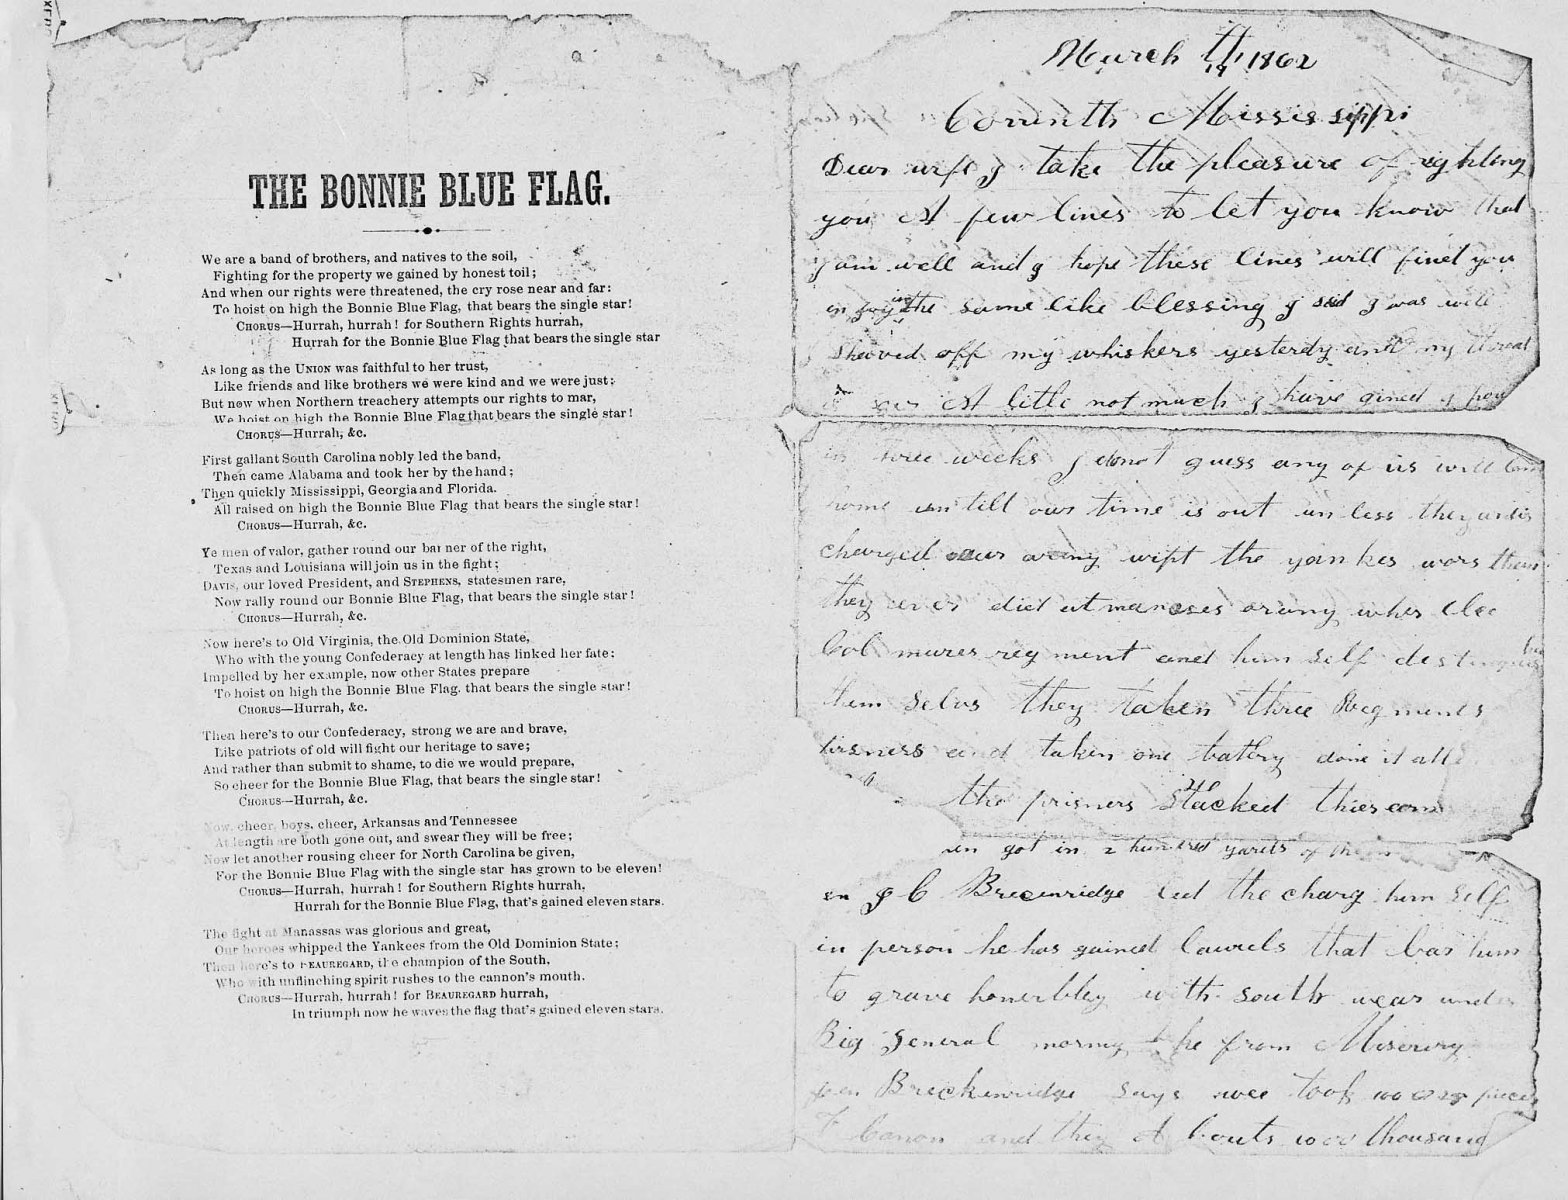 THE BONNIE BLUE FLAG.
We are a band of brothers, and natives to the soil,
Fighting for the property we gained by honest toil;
And when our rights were threatened, the cry rose near and far:
To hoist on high the Bonnie Blue Flag, that bears the single star!
CHORUS—Hurrah, hurrah! for Southern Rights hurrah,
Hurrah for the Bonnie Blue Flag that bears the single star
As long as the UNION was faithful to her trust,
Like friends and like brothers we were kind and we were just;
But now when Northern treachery attempts our rights to mar,
We hoist on high the Bonnie Blue Flag that bears the single star!
CHORUS—Hurrah, &c.
First gallant South Carolina nobly led the band,
Then came Alabama and took her by the hand;
Then quickly Mississippi, Georgia and Florida.
All raised on high the Bonnie Blue Flag that bears the single star!
CHORUS—Hurrah, &c.
Ye men of valor, gather round our banner of the right,
Texas and Louisiana will join us in the fight;
DAVIS, our loved President, and STEPHENS, statesmen rare,
Now rally round our Bonnie Blue Flag, that bears the single star!
CHORUS—Hurrah, &c.
Now here's to Old Virginia, the Old Dominion State,
Who with the young Confederacy at length has linked her fate;
Impelled by her example, now other States prepare
To hoist on high the Bonnie Blue Flag. that bears the single star!
CHORUS—Hurrah, &c.
Then here's to our Confederacy, strong we are and brave,
Like patriots of old will fight our heritage to save;
And rather than submit to shame, to die we would prepare,
So cheer for the Bonnie Blue Flag, that bears the single star!
CHORUS—Hurrah, &c.
Now, cheer, boys, cheer, Arkansas and Tennessee
At length are both gone out, and swear they will be free;
Now let another rousing cheer for North Carolina be given,
For the Bonnie Blue Flag with the single star has grown to be eleven!
CHORUS—Hurrah, hurrah! for Southern Rights hurrah,
Hurrah for the Bonnie Blue Flag, that's gained eleven stars.
The fight at Manassas was glorious and great,
Our heroes whipped the Yankees from the Old Dominion State;
Then here's to BEAUREGARD, the champion of the South,
Who with unflinching spirit rushes to the cannon's mouth.
CHORUS—Hurrah, hurrah! for BEAUREGARD hurrah,
In triumph now he waves the flag that's gained eleven stars.
March 1862
Corrinth Mississippi
Dear wife I take the pleasure of
you A few lines to let you know that
I am well and I hope these lines will find you
in the same like blessing I said I was will
shaved off my whiskers yesterdy and my throat
is A little not much I have gined
in three weeks I donot guess any of us will
home un till our time is out un less they
charged our army wipt the yankes wors then
they ever did at
Col regment and him self
them selvs they taken three Regments
and taken one done it all
the prisners stacked
got in 2 hundred yards of them
Breenridge led the charg him self
in person he has gained laurels that him
to grave honerbley with south
Big General from
Breckenridge says wee took 100 pieces
canon and they A bouts 1000 thousand